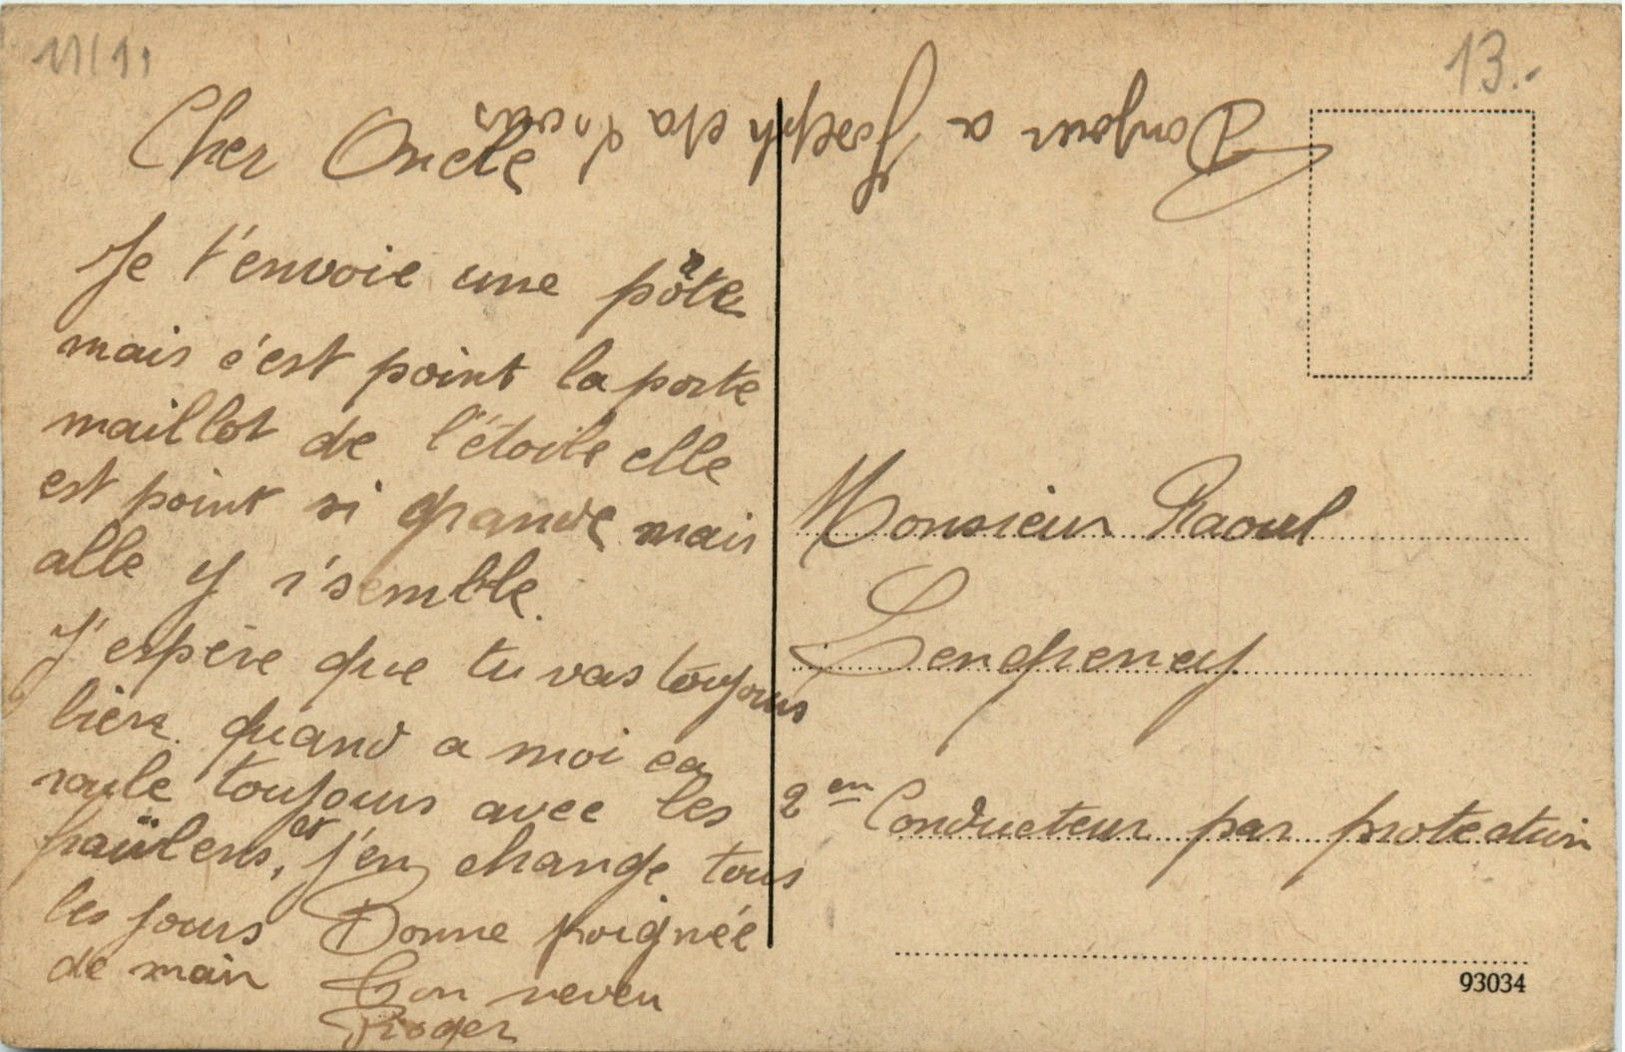 13.-
Cher Oncle
Je t'envoie une pôte
mais c'est point la porte
maillot de l'étoile elle
est point si grande mais
alle y r'semble.
J'espère que tu vas toujours
bien. quand a moi ca
roule toujours avec les
et j'en change tous
les jours Bonne poignée
de main Ton neveu
Roger
Bonjour a Joseph et a
Monsieur Raoul
2em Conducteur par protection
93034